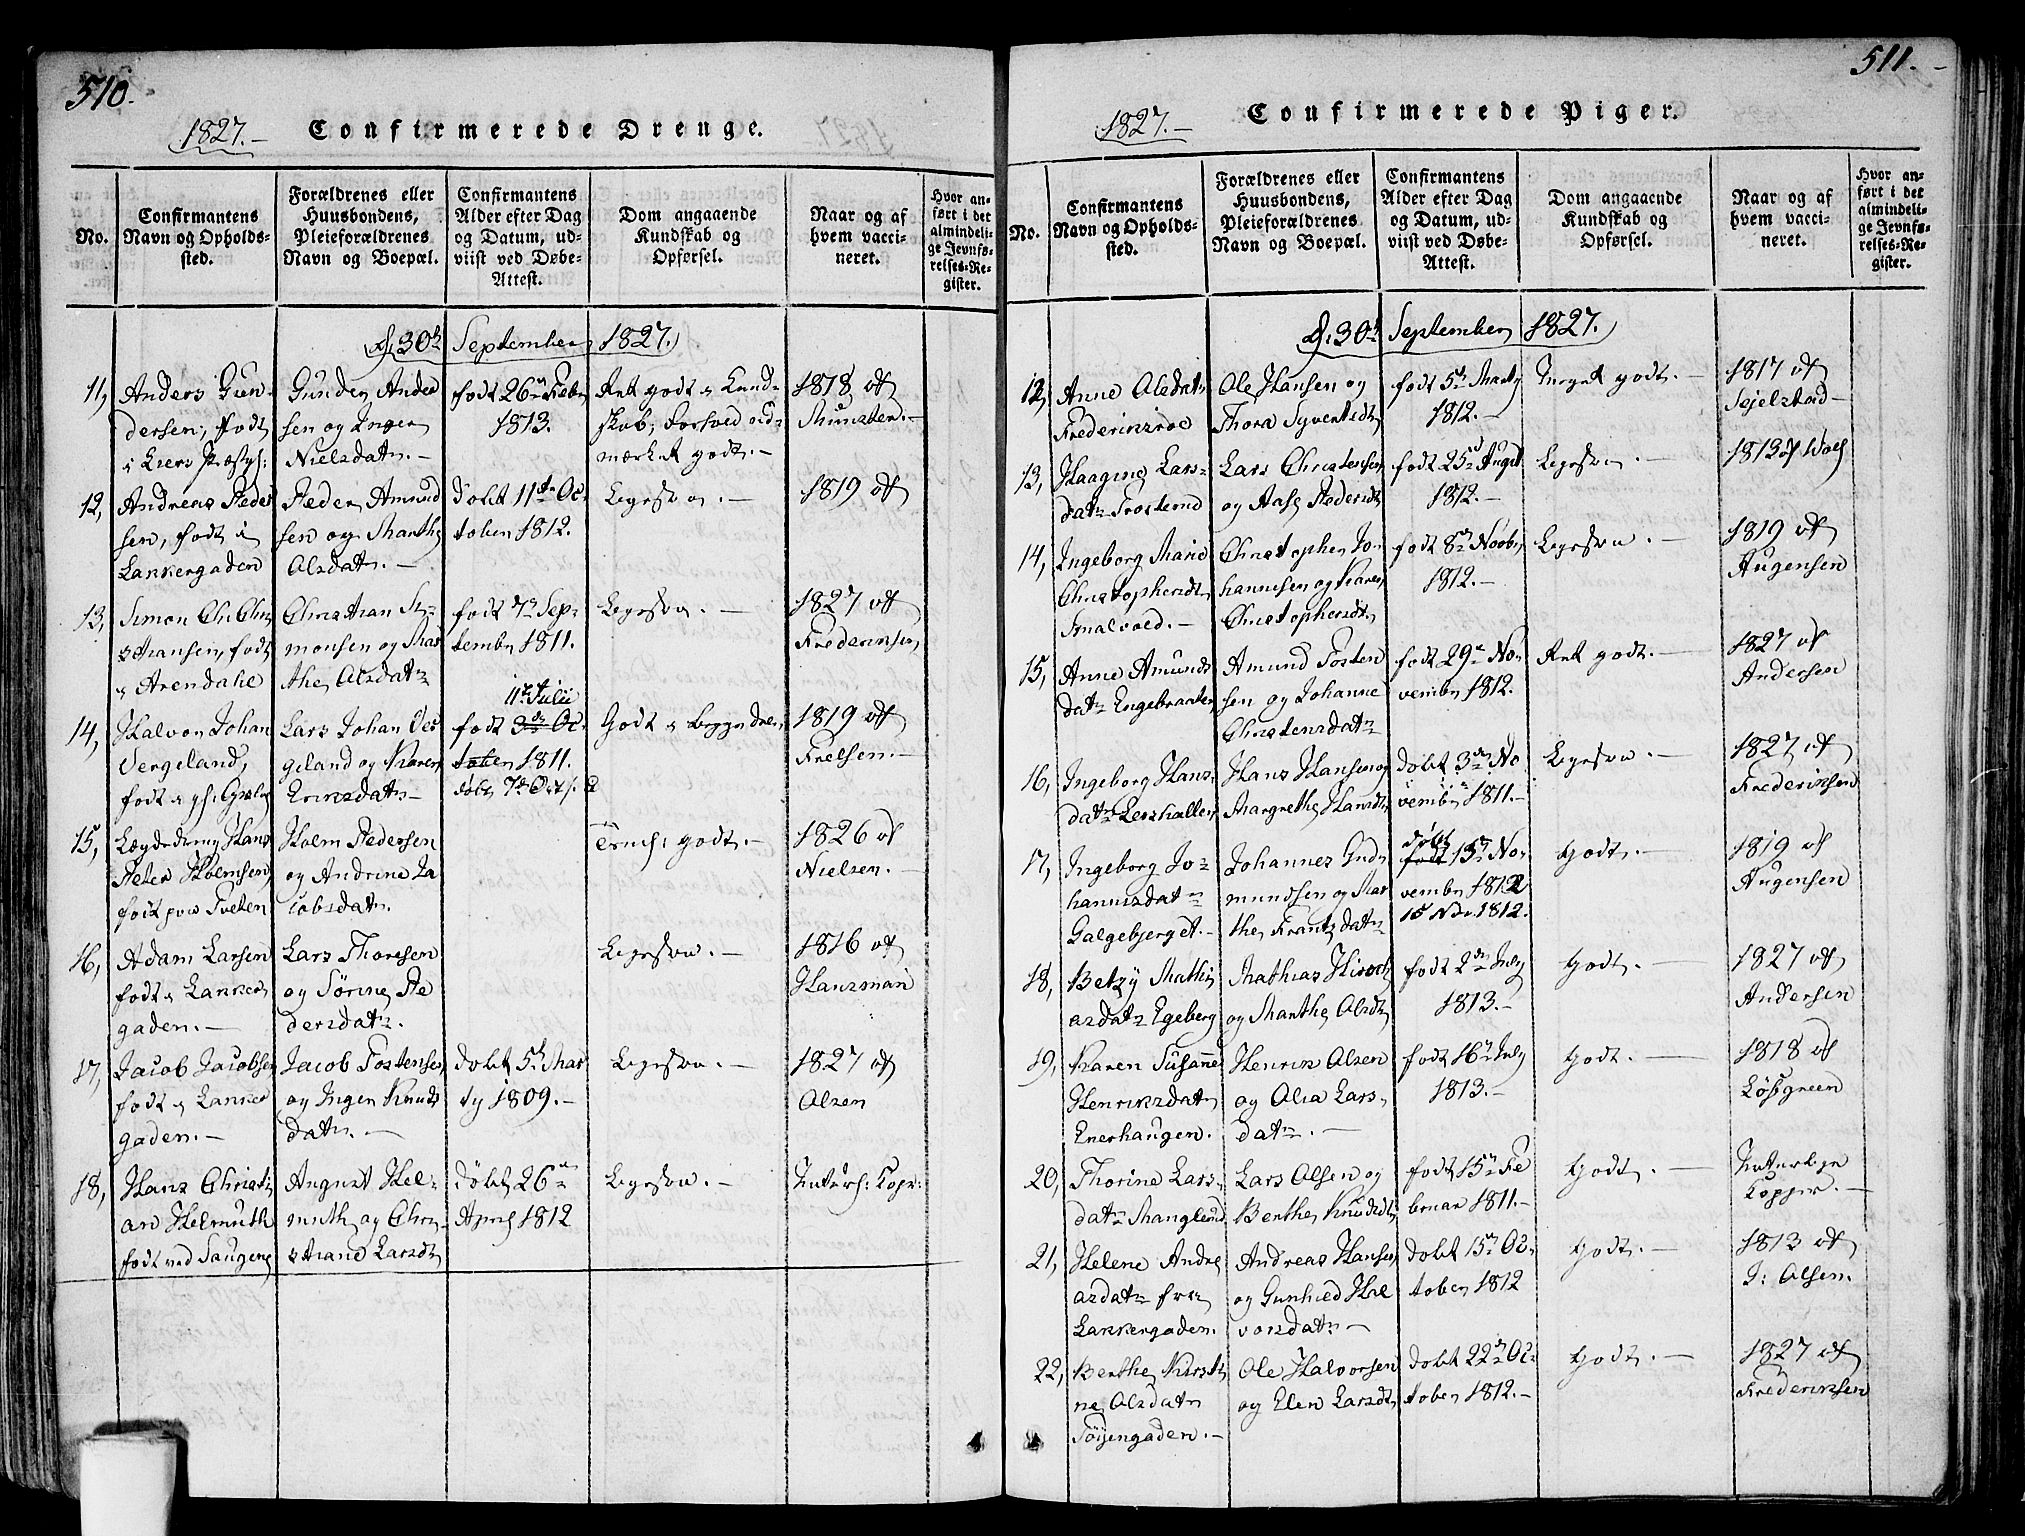 510.
1827.-
Confirmerede Drenge.
No.
Confirmantens
Navn og Opholds-
sted.
Forældrenes eller
Huusbondens,
Pleieforældrenes
Navn og Boepæl.
Confirmantens
Alder efter Dag
og Datum, ud-
viist ved Døbe-
Attest.
Dom angaaende
Kundskab og
Opførsel.
Naar og af
hvem vacci-
neret.
Hvor an-
ført i det
almindeli-
ge Jevnfø-
relses-Re-
gister.
September 1827.
11,
Anders Gun-
dersen, født
i Liers Præstgj:
Gunder Ander
sen og Inger
Nielsdatr. -
født 26de Febr
1813.
Ret godt i Kund-
skab, Forhold ud-
mærket godt. -
1818 af
Munster. -
12,
Andreas Peder
sen, født i
Lakkergaden
Peder Amund
sen og Marthe
Olsdatr. -
Døbt 11te Oc-
tober 1812.
Ligesaa. -
1819 af
13,
Simon Chr
stiansen, født
i Arendahl
Christian Si-
monsen og Mar
the Olsdatr
født 7de Sep-
tembr 1811.
Ligesaa. -
1827 af
Frederiksen
14,
Halvor Johan
Vergeland,
født
Lars Johan Ver
geland og Karen
Eriksdatr -
11te Julii
født 3de Oc-
tober 1811.
døbt 7de Oct.
Godt
1819 af
Frelsen. -
15,
Hans
Peter Holmsen,
født paa Tveten
Holm Pedersen
og Andrine Ja
cobsdatr.
godt. -
1826 af
Nielsen. -
16,
Adam Larsen
født i Lakker
gaden. -
Lars Thoresen
og Sörine Pe
dersdatr.
Ligesaa. -
1816 af
Hansman
17,
Jacob Jacobsen
født i Lakker
gaden. -
Jacob Tostensen
og Inger Knuds
datr. -
Døbt 5te Mar
ty 1809. -
Ligesaa. -
1827 af
Olsen
18,
Hans Christi
an Helmuth
født ved Saugene
August Hel-
muth og Chri-
stiane Larsdt
Døbt 26de
April 1812
Ligesaa. -
Naturl: Kopr:
511. -
1827. -
Confirmerede Piger.
No.
Confirmantens
Navn og Opholds-
sted.
Forældrenes eller
Huusbondens,
Pleieforældrenes
Navn og Boepæl.
Confirmantens
Alder efter Dag
og Datum, ud-
viist ved Døbe-
Attest.
Dom angaaende
Kundskab og
Opførsel.
Naar og af
hvem vacci-
neret.
Hvor an-
ført i det
almindeli-
ge Jevnfø-
relses-Re-
gister.
September 1827.
12,
Anne Olsdatr
Ole Hansen og
Thora Syvertsdt
født 5te Marty
1812. -
Meget godt. -
1817 af
Sejelstad -
13,
Haagine Lars-
datr
Lars Christensen
og Aase Pedersdt
født 25de Augst
1812. -
Ligesaa. -
1813 af
14,
Ingeborg Marie
Christophersdt
Smalvold. -
Christopher Jo-
hannesen og Karen
Christophersdt
født 8de Novbr
1812. -
Ligesaa. -
1819 af
Augensen
15,
Anne Amunds
datr Engebraaten
Amund Tosten
sen og Johanne
Christensdatr
født 29de No-
vembr 1812.
Ret godt. -
1827 af
Andersen
16,
Ingeborg Hans-
datr
Hans Hansen og
Margrethe Hansdt
Døbt 3de No
vembr 1811. -
Ligesaa. -
1827 af
Frederiksen
17,
Ingeborg Jo-
hannesdatr
Galgebjerget. -
Johannes Gud-
mundsen og Mar
the Frantzdatr
døbt
født 13de No-
vembr 1812
15 Nov. 1812.
Godt. -
1819 af
Augensen
18,
Betzy Mathi
asdatr Egeberg
Mathias Hirsch
og Marthe Olsdt
født 2den July
1813. -
Godt. -
1827 af
Andersen
19,
Karen Susanne
Henriksdatr
Enerhaugen.
Henrik Olsen
og Olia Lars-
datr. -
født 16de July
1813. -
Godt. -
1818 af
Löfgreen
20,
Thorine Lars-
datr Manglerud
Lars Olsen og
Berthe Knudsdt
født 15de Fe
bruar 1811. -
Godt. -
Naturlige
Kopper. -
21,
Helene Andre
asdatr fra
Lakkergaden.
Andreas Hansen
og Gunhild Hal
vorsdatr -
Døbt 15de Oc-
tober 1812
Godt. -
1813 af
J: Olsen.
22,
Berthe Kirsti
ne Olsdatr
Töijengaden. -
Ole Halvorsen
og Elen Larsdt
Døbt 22de Oc-
tober 1812. -
Godt. -
1827 af
Frederiksen